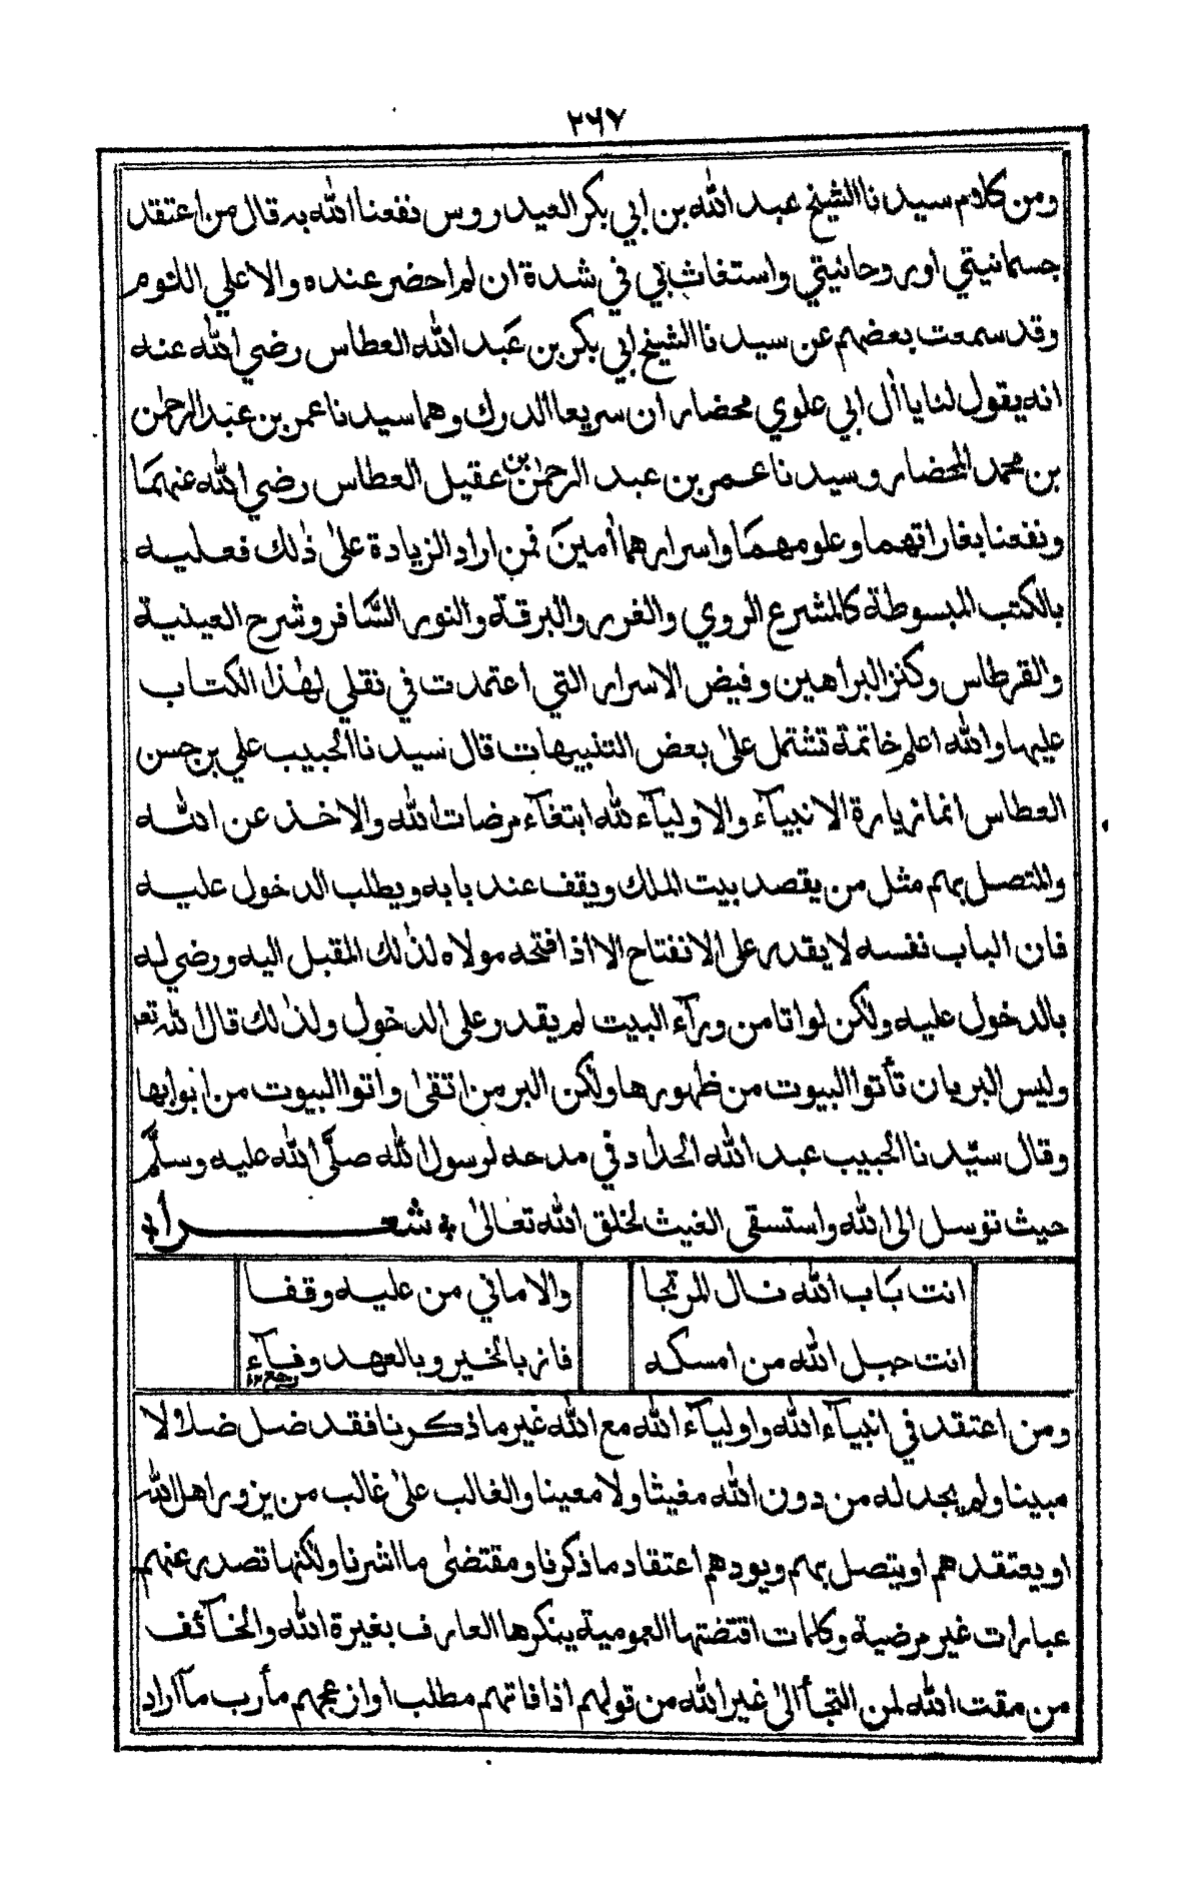 ٢٦٧
ومن كلام سيدنا الشيخ عبد الله بن ابي بكر العيدروس نفعنا الله به قال من اعتقد
جسمانيتي اوروحانيتي واستغاث بي في شدة ان لم احضر عنده والا علي اللوم
وقد سمعت بعضهم عن سيدنا الشيخ ابي بكر بن عبد الله العطاس رضي الله عنه
انه يقول لنا يا أل ابي علوي محضاران سريعا الدرك وهما سيدنا عمر بن عبد الرحمٰن
بن محمد المحضار وسيدنا عمر بن عبد الرحمٰن بن عقيل العطاس رضي الله عنهما
ونفعنا بغاراتهما وعلومهما واسرارهما أمين فمن اراد الزيادة علىٰ ذٰلك فعليه
بالكتب المبسوطة كالمشرع الروي والغرر والبرقة والنور السافر وشرح العينية
والقرطاس وكنز البراهين وفيض الاسرار التي اعتمدت في نقلي لهٰذا الكتاب
عليها والله اعلم خاتمة تشتمل علىٰ بعض التنبيهات قال سيدنا الحبيب علي بن حسن
العطاس انما زيارة الانبيآء والاوليآء لله ابتغآء مرضات الله والاخذ عن الله
والمتصل بهم مثل من يقصد بيت الملك ويقف عند بابه ويطلب الدخول عليه
فان الباب نفسه لا يقدر على الانفتاح الا اذا فتحه مولاه لذٰلك المقبل اليه ورضي له
بالدخول عليه ولٰكن لواتا من ورآء البيت لم يقدر على الدخول ولذٰلك قال لله تعر
وليس البر بان تأتوا البيوت من ظهورها ولٰكن البر من اتقىٰ واتوا البيوت من ابوابها
وقال سيّدنا الحبيب عبد الله الحداد في مدحه لرسول الله صلّى الله عليه وسلّم
حيث توسل الى الله واستسقى الغيث لخلق الله تعالىٰ * شعراً *
انت باب الله نال المرتجا والاماني من عليه وقفا
انت حبل الله من امسكه فاز بالخير وبالعهد وفآء
ومن اعتقد في انبيآء الله واوليآء الله مع الله غير ما ذكرنا فقد ضل ضلالا
مبينا ولم يجد له من دون الله مغيثا ولا معينا والغالب علىٰ غالب من يزور اهل الله
او يعتقدهم او يتصل بهم ويودهم اعتقاد ما ذكرنا ومقتضىٰ ما اشرنا ولٰكنها تصدر عنهم
عبارات غير مرضية وكلمات اقتضتها العمومية ينكرها العارف بغيرة الله والخآئف
من مقت الله لمن التجأ الىٰ غير الله من قولهم اذا فاتهم مطلب او ازعجهم مأرب مآ اراد